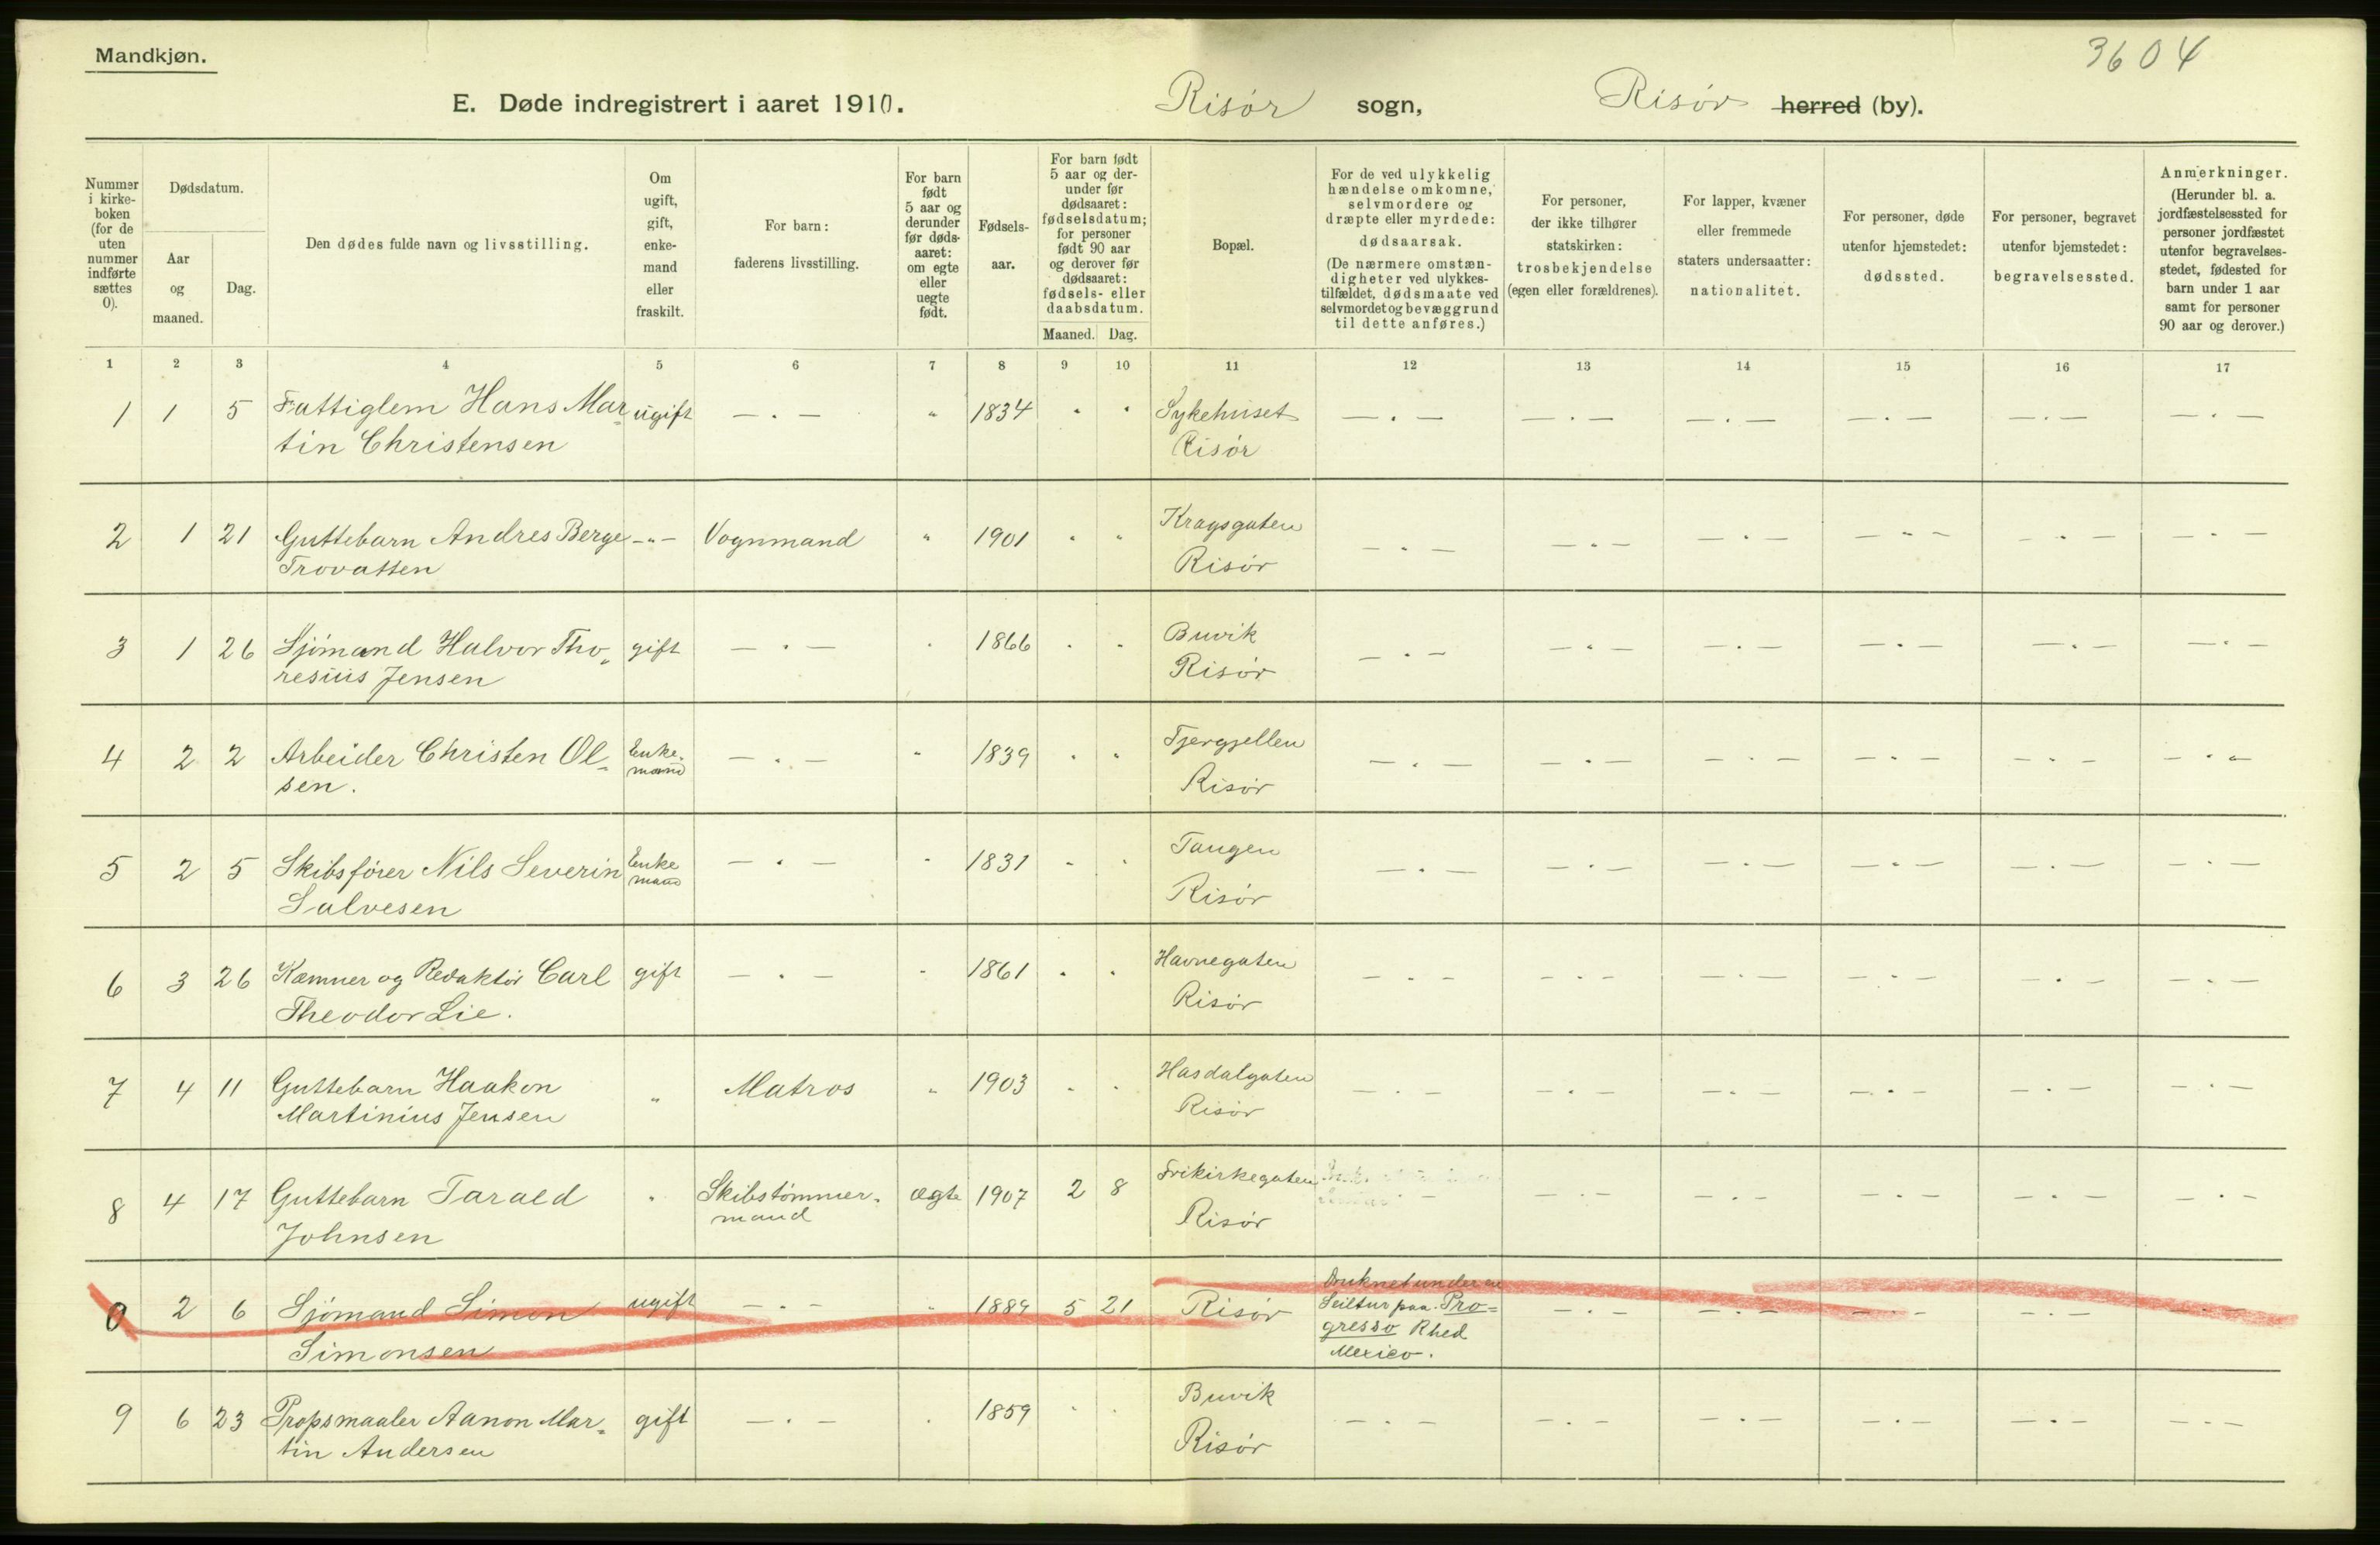 Mandkjøn.
3604
E. Døde indregistrert i aaret 1910.
Risör sogn,
Risör herred (by).
Nummer i kirke-boken (for de uten nummer indførte sættes 0).
Dødsdatum.
Aar og maaned.
Dag.
Den dødes fulde navn og livsstilling.
Om ugift, gift, enke-mand eller fraskilt.
For barn: faderens livsstilling.
For barn født 5 aar og derunder før døds-aaret: om egte eller uegte født.
Fødsels-aar.
For barn født 5 aar og der-under før dødsaaret: fødselsdatum; for personer født 90 aar og derover før dødsaaret: fødsels- eller daabsdatum.
Maaned. Dag.
Bopæl.
For de ved ulykkelig hændelse omkomne, selvmordere og dræpte eller myrdede: dødsaarsak. (De nærmere omstæn-digheter ved ulykkes-tilfældet, dødsmaate ved selvmordet og bevæggrund til dette anføres.)
For personer, der ikke tilhører statskirken: trosbekjendelse (egen eller forældrenes).
For lapper, kvæner eller fremmede staters undersaatter: nationalitet.
For personer, døde utenfor hjemstedet: dødssted.
For personer, begravet utenfor bjemstedet: begravelsessted.
Anmerkninger. (Herunder bl. a. jordfæstelsessted for personer jordfæstet utenfor begravelses-stedet, fødested for barn under 1 aar samt for personer 90 aar og derover.)
1 2 3 4 5 6 7 8 9 10 11 12 13 14 15 16 17
1 1 5 Fattiglem Hans Mar= ugift — . — " 1834 " " Sykehuset — . — — . — — . — — . — — . — — . —
tin Christensen Risör
2 1 21 Guttebarn Andres Berge —"— Vognmand " 1901 " " Kragsgaten — . — — . — — . — — . — — . — — . —
Trovatten Risör
3 1 26 Sjömand Halvor Tho= gift — . — " 1866 " " Buvik — . — — . — — . — — . — — . — — . —
resius Jensen Risör
4 2 2 Arbeider Christen Ol= Enke= mand — . — " 1839 " " Tjergjellen — . — — . — — . — — . — — . — — . —
sen. Risör
5 2 5 Skibsförer Nils Severin Enke mand — . — " 1831 " " Tangen — . — — . — — . — — . — — . — — . —
Salvesen Risör
6 3 26 Kæmner og Redaktör Carl gift — . — " 1861 " " Havnegaten — . — — . — — . — — . — — . — — . —
Theodor Lie. Risör
7 4 11 Guttebarn Haakon " Matros " 1903 " " Hasdalgaten — . — — . — — . — — . — — . — — . —
Martinius Jensen Risör
8 4 17 Guttebarn Tarald " Skibstömmer= ægte 1907 2 8 Frikirkegaten — . — — . — — . — — . — — . — — . —
Johnsen mand Risör
0 2 6 Sjömand Simon ugift — . — " 1889 5 21 Risör Druknet under en — . — — . — — . — — . — — . —
Simonsen Seiltur paa Pro=
gresso Rhed
Mexico.
9 6 23 Propsmaaler Aanon Mar= gift — . — " 1859 " " Buvik — . — — . — — . — — . — — . — — . —
tin Andersen Risör